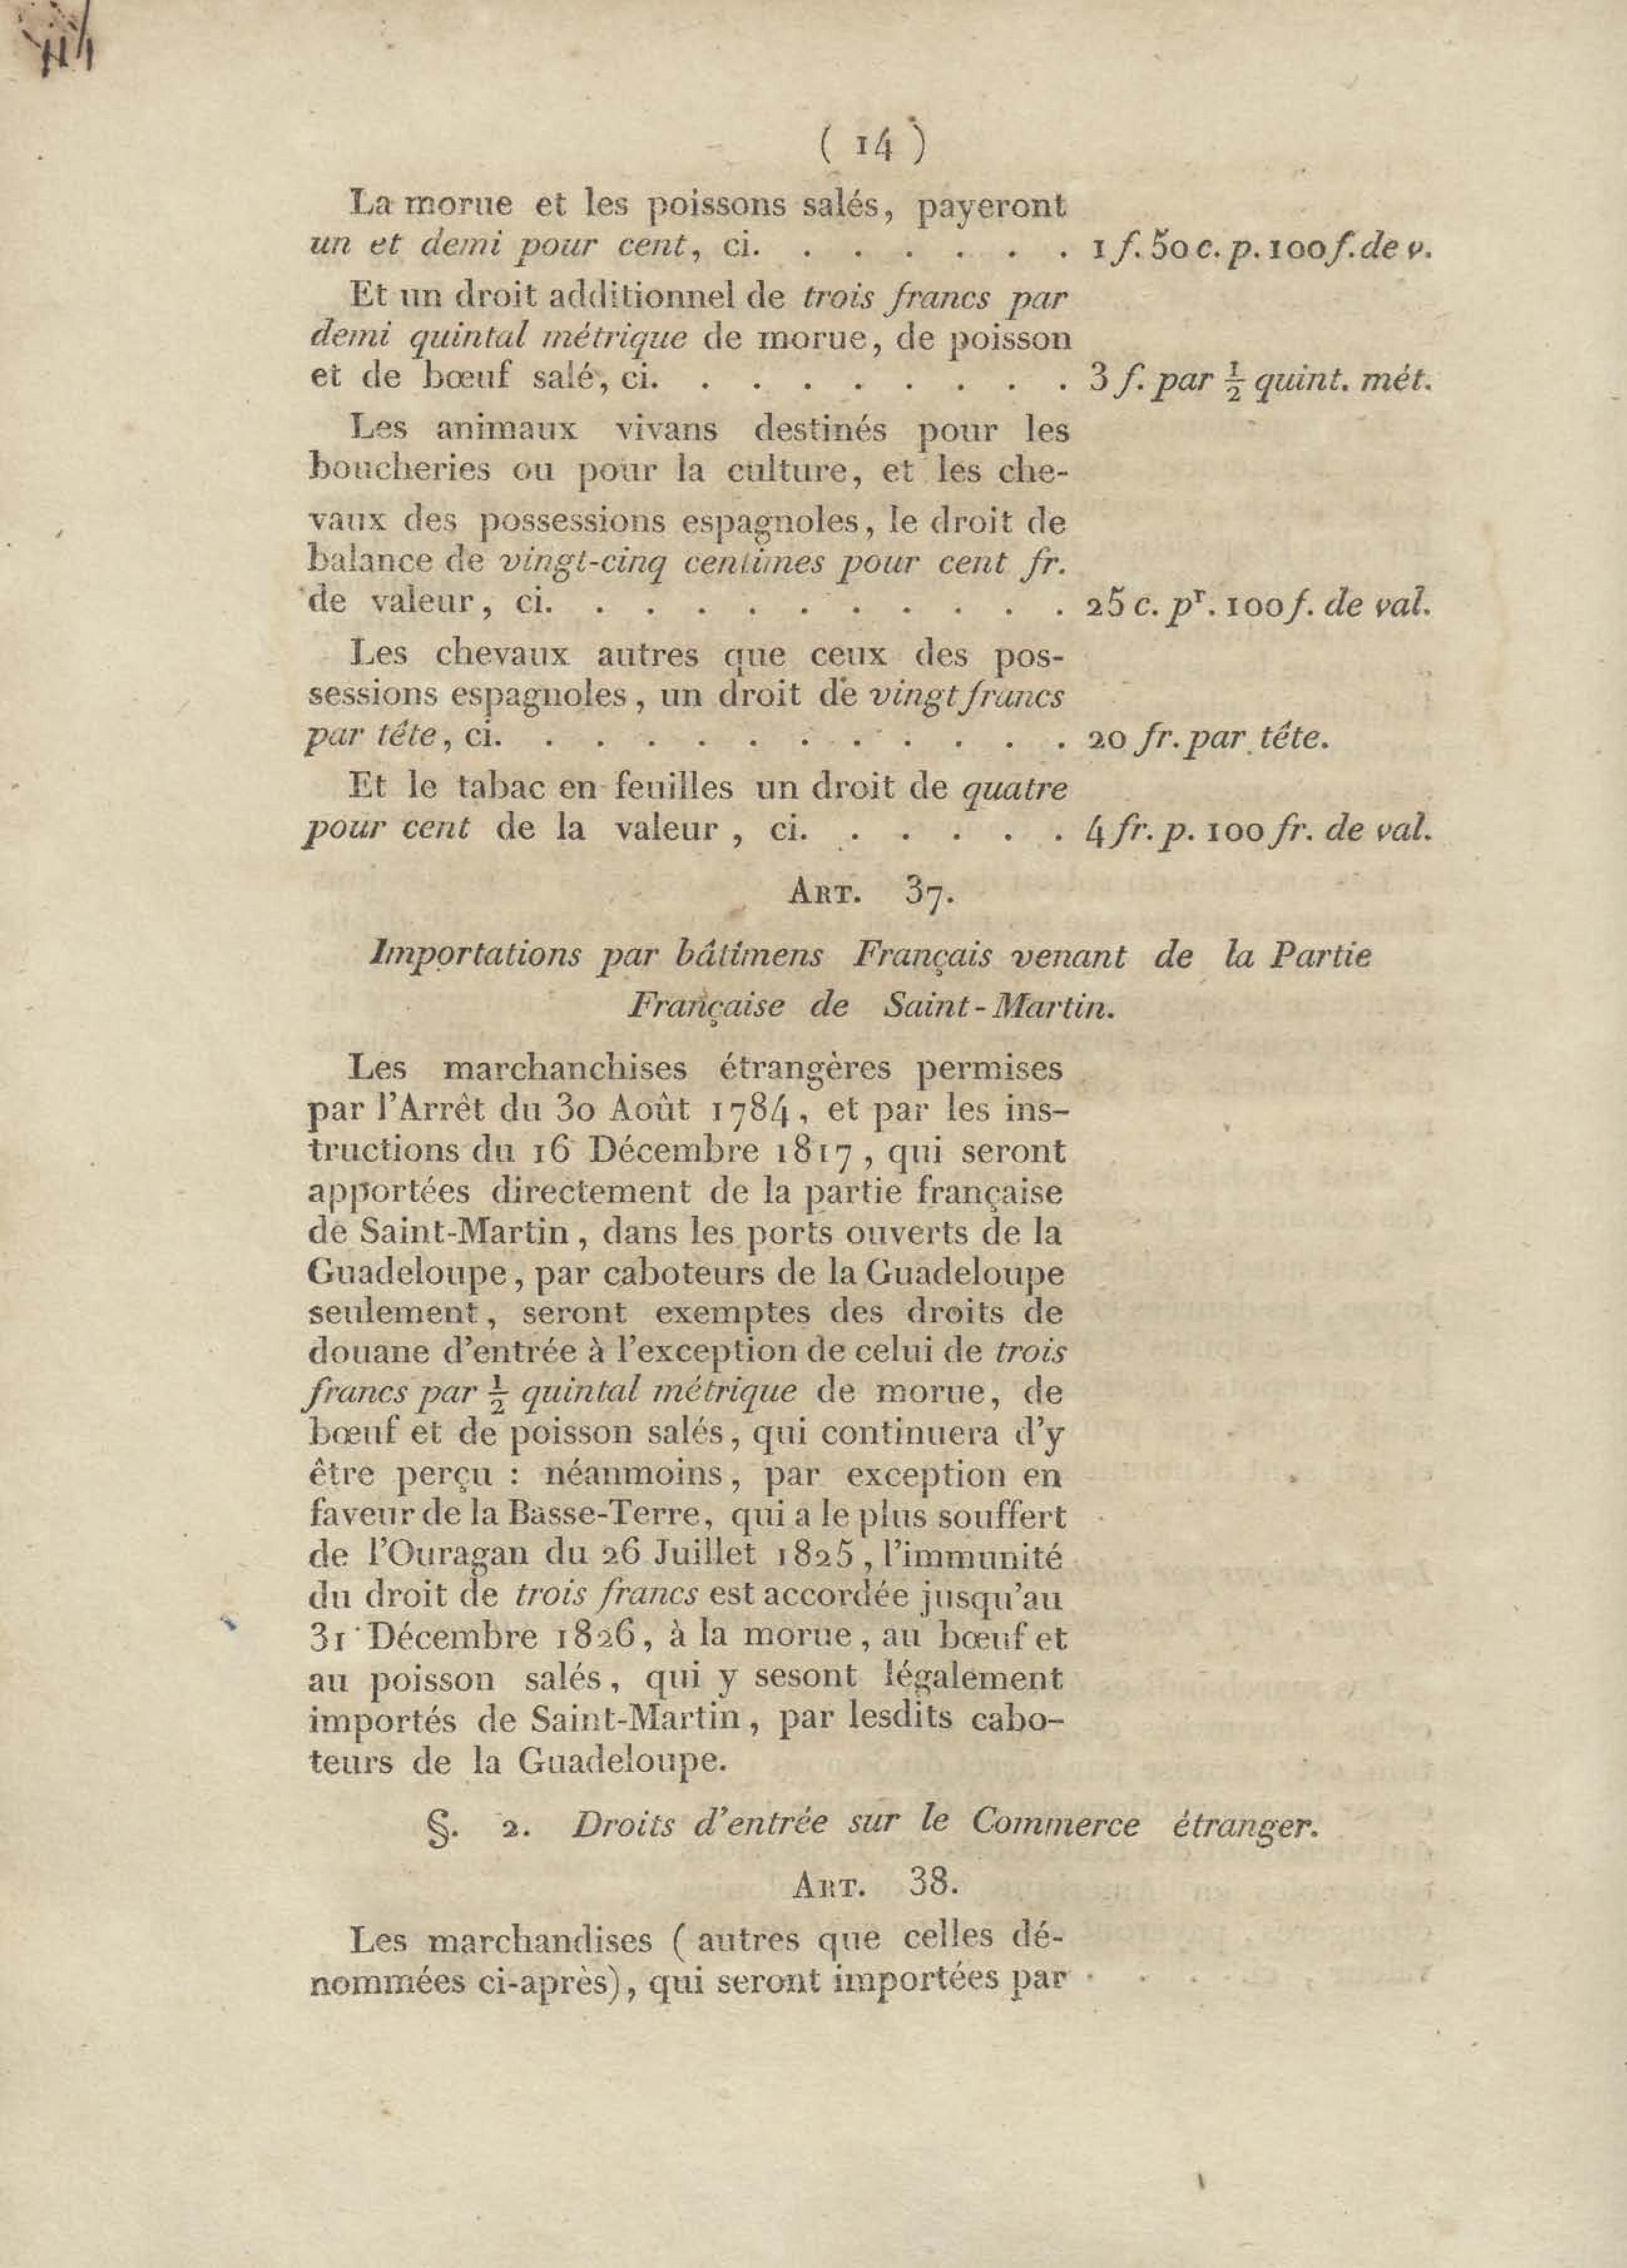 ( 14 )
La morue et les poissons salés, payeront
un et demi pour cent, ci. . . . . . . 1 f. 50 c. p. 100 f. de v.
Et un droit additionnel de trois francs par
demi quintal métrique de morue, de poisson
et de bœuf salé, ci. . . . . . . . . 3 f. par ½ quint. mét.
Les animaux vivans destinés pour les
boucheries ou pour la culture, et les che-
vaux des possessions espagnoles, le droit de
balance de vingt-cinq centimes pour cent fr.
de valeur, ci. . . . . . . . . . . 25 c. pr. 100 f. de val.
Les chevaux autres que ceux des pos-
sessions espagnoles, un droit de vingt francs
par tête, ci. . . . . . . . . . . . 20 fr. par tête.
Et le tabac en feuilles un droit de quatre
pour cent de la valeur, ci. . . . . . 4 fr. p. 100 fr. de val.
ART. 37.
Importations par bâtimens Français venant de la Partie
Française de Saint-Martin.
Les marchanchises étrangères permises
par l'Arrêt du 30 Août 1784, et par les ins-
tructions du 16 Décembre 1817, qui seront
apportées directement de la partie française
de Saint-Martin, dans les ports ouverts de la
Guadeloupe, par caboteurs de la Guadeloupe
seulement, seront exemptes des droits de
douane d'entrée à l'exception de celui de trois
francs par ½ quintal métrique de morue, de
bœuf et de poisson salés, qui continuera d'y
être perçu : néanmoins, par exception en
faveur de la Basse-Terre, qui a le plus souffert
de l'Ouragan du 26 Juillet 1825, l'immunité
du droit de trois francs est accordée jusqu'au
31 Décembre 1826, à la morue, au bœuf et
au poisson salés, qui y sesont légalement
importés de Saint-Martin, par lesdits cabo-
teurs de la Guadeloupe.
§. 2. Droits d'entrée sur le Commerce étranger.
ART. 38.
Les marchandises ( autres que celles dé-
nommées ci-après), qui seront importées par